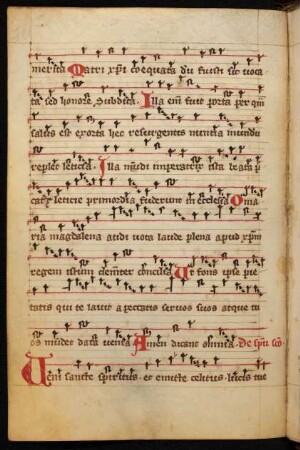 merita Matri xpi coequata du fuisti sic voca
ta sed honore subdita. Illa em fuit porta per qm
salus est exorta hec resurgentis nuntia mundu
replet leticia. Illa mundi imperatrix ista beata p
catrix leticie primordia fuderunt in ecclesia O ma
ria magdalena audi vota laude plena apud xpm
regem istum clementer concilia Ut fons ipse pie
tatis qui te lavit a peccatis servos suos atque tu
os mundet data venia Amen dicant omnia. De spu sco
Veni sancte spiritus et emitte celitus lucis tue